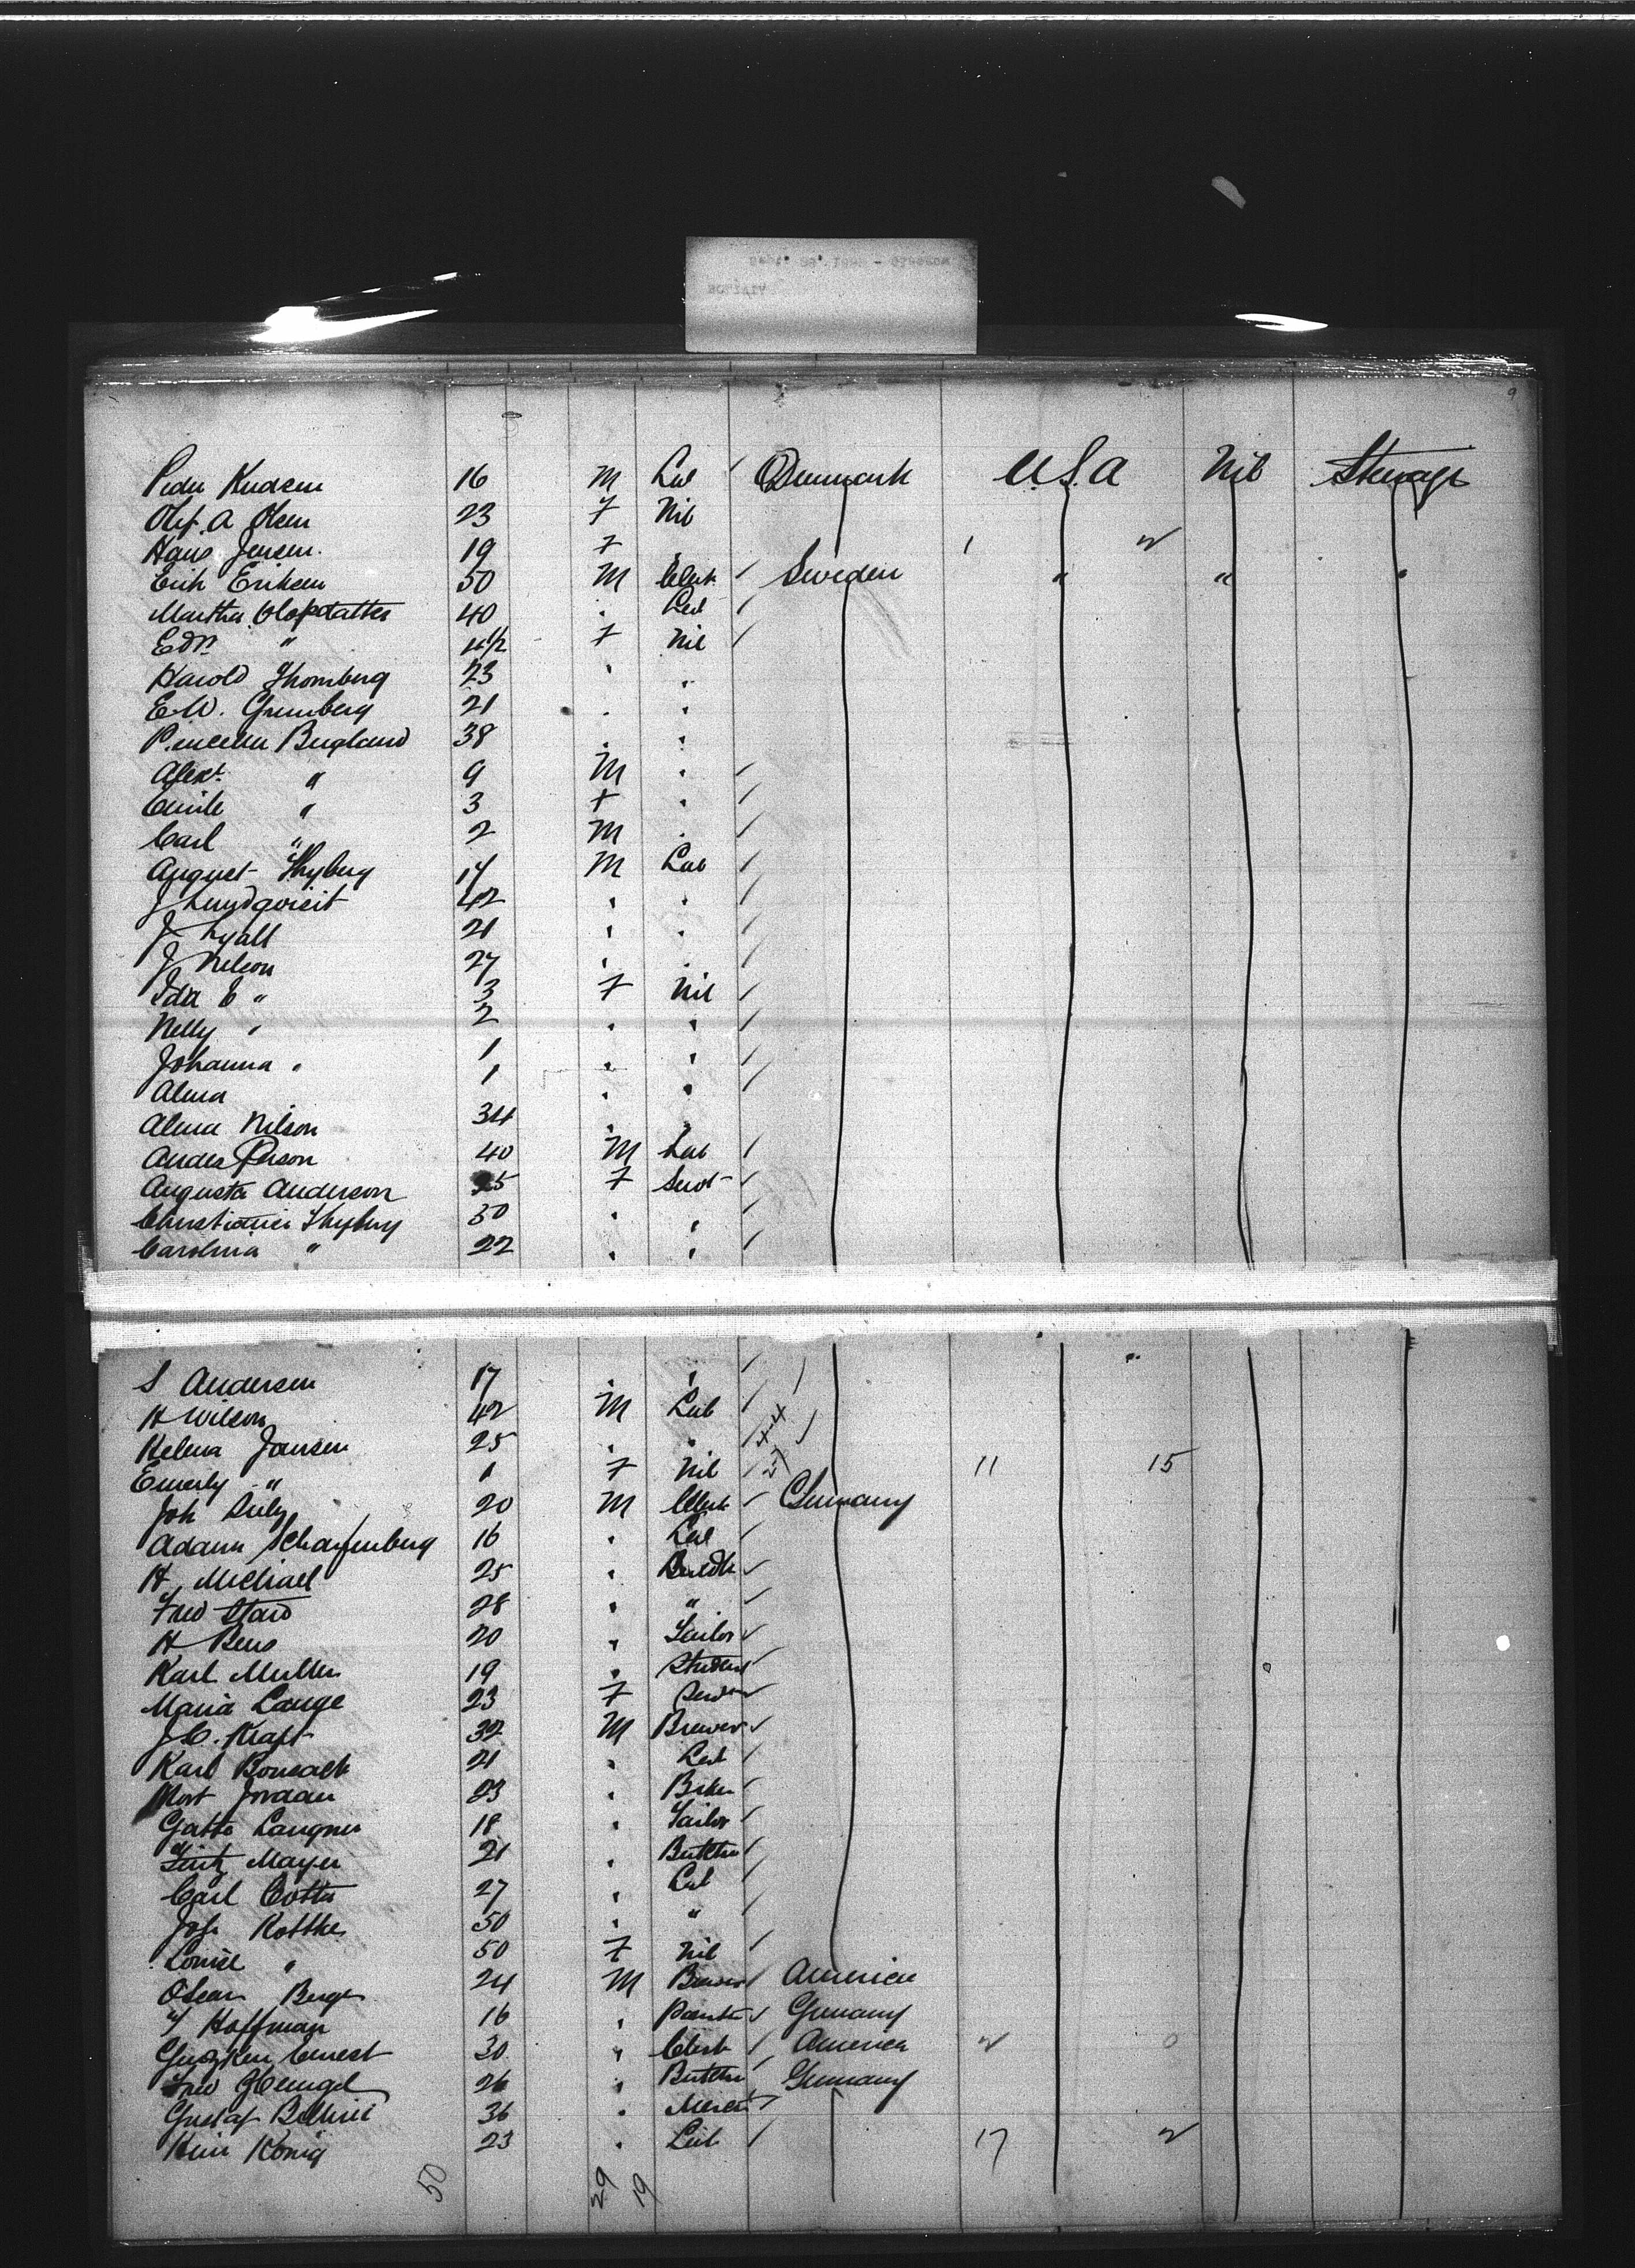 9
Peder Knudsen 16 M Lab Denmark U.S.A Nil Steerage
Olef. A Olsen 23 F Nil
Hans Jensen 19 F 1 2
Erik Eriksen 50 M Clerk Sweden " " "
Martha Olofsdatter 40 . Lab
Edn " 4 1/2 F Nil
Harold Thornberg 23 " "
E.W. Grunberg 21 . "
Berglund 38 . "
Alexr " 9 M "
Emile " 3 F "
Carl " 2 M .
August Thyberg 14 M Lab
J Lundqvist 42 " "
J Lyall 21 " "
J Nelson 27 . .
Ida C " 3 F Nil
Nelly " 2 . "
Johanna " 1 " "
Alma 1 " "
Alma Nilson 34 . .
Andes Person 40 M Lab
Augusta Anderson 25 F Servt
Christiania Thyberg 30 . "
Carolina " 22 " "
S Andersen 17 . "
H Wilson 42 M Lab
Helena Jansen 25 . "
Emerly " 1 F Nil 11 15
Joh 20 M Clerk Germany
Adam Scharfenberg 16 . Lab
H Michael 25 "
Fred 28 " "
H Bens 20 " Tailor
Karl Muller 19 " Student
Maria Lange 23 F Servt
J.C. Kraft 32 M Brewer
Karl Bonsack 21 . Lab
Jordan 23 . Baker
Langner 18 . Tailor
Fritz Mayer 21 . Butcher
Carl Cotta 27 " Lab
Jos. Kottke 50 . "
Louise " 50 F Nil
Oscar Berge 24 M Brewer America
Hoffman 16 " Germany
Ernest 30 " Clerk America 2 0
Fred 26 " Butcher Germany
Gustaf 36 "
König 23 " Lab 17 2
50 29 19